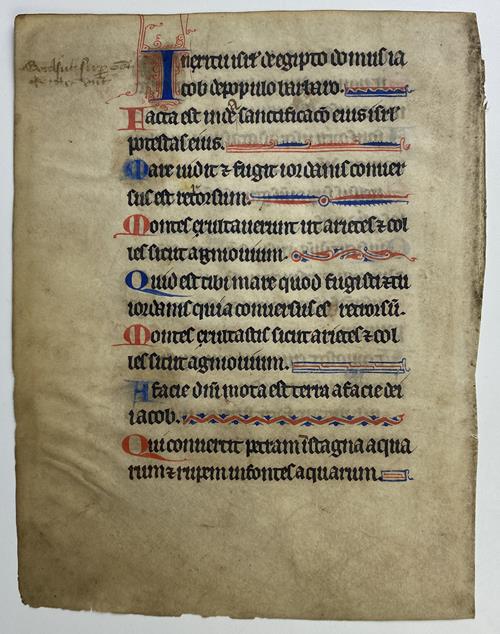 In exitu isrl de egipto domus ia
cob de populo barbaro.
Facta est iudea sanctificacō eius isrl
potestas eius.
Mare uidit ⁊ fugit iordanis conuer
sus est retorsum.
Montes exultauerunt ut arietes ⁊ col
les sicut agni ouium.
Quid est tibi mare quod fugisti ⁊ tu
iordanis quia conuersus es retrorsū.
Montes exultastis sicut arietes ⁊ col
les sicut agni ouium.
A facie dn̄i mota est terra a facie dei
iacob.
Qui conuertit petram ī stagna aqua
rum ⁊ rupem in fontes aquarum.